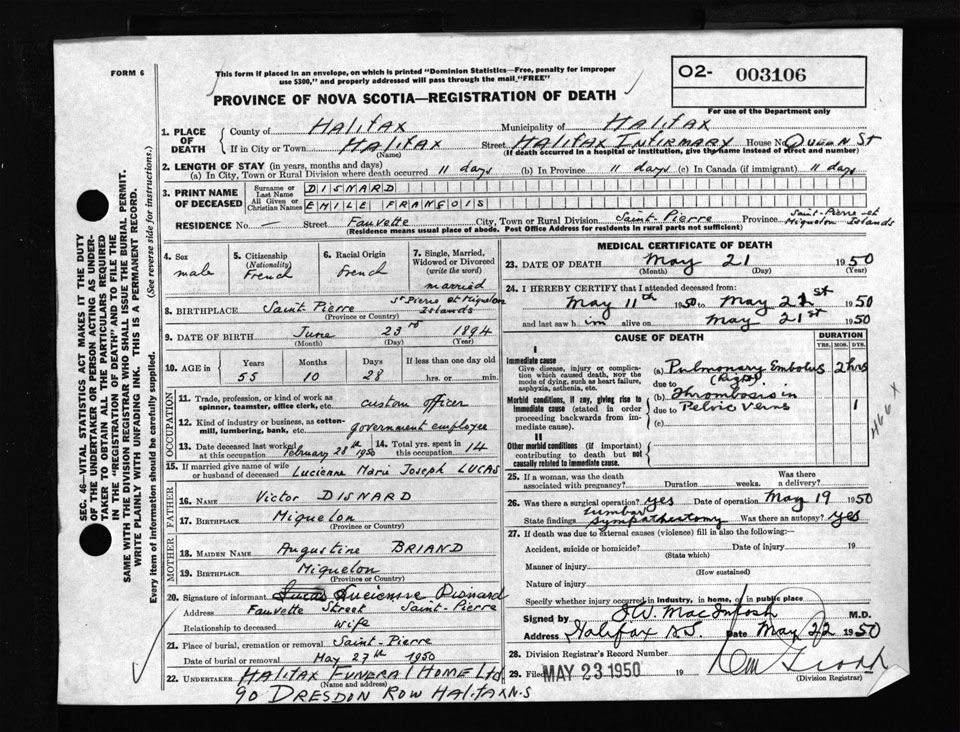 FORM 6
This form if placed in an envelope, on which is printed "Dominion Statistics—Free, penalty for improper
use $300," and properly addressed will pass through the mail "FREE"
O2- 003106
For use of the Department only
PROVINCE OF NOVA SCOTIA—REGISTRATION OF DEATH
1. PLACE OF DEATH
County of Halifax Municipality of Halifax
If in City or Town Halifax Street Halifax Infirmary House No Queen St
(Name) (If death occurred in a hospital or institution, give the name instead of street and number)
2. LENGTH OF STAY (in years, months and days)
(a) In City, Town or Rural Division where death occurred 11 days (b) In Province 11 days (c) In Canada (if immigrant) 11 days
3. PRINT NAME OF DECEASED
Surname or Last Name DISNARD
All Given or Christian Names EMILE FRANÇOIS
RESIDENCE No. — Street Fauvette City, Town or Rural Division Saint-Pierre Province Saint-Pierre et Miquelon Islands
(Residence means usual place of abode. Post Office Address for residents in rural parts not sufficient)
4. Sex
male
5. Citizenship (Nationality)
French
6. Racial Origin
french
7. Single, Married, Widowed or Divorced (write the word)
married
8. BIRTHPLACE Saint-Pierre St Pierre et Miquelon Islands
(Province or Country)
9. DATE OF BIRTH June 23rd 1894
(Month) (Day) (Year)
10. AGE in
Years Months Days If less than one day old
55 10 28 hrs. or min.
OCCUPATION
11. Trade, profession, or kind of work as spinner, teamster, office clerk, etc. custom officer
12. Kind of industry or business, as cotton-mill, lumbering, bank, etc. government employee
13. Date deceased last worked at this occupation February 28th 1950
14. Total yrs. spent in this occupation 14
15. If married give name of wife or husband of deceased Lucienne Marie Joseph LUCAS
FATHER
16. NAME Victor DISNARD
17. BIRTHPLACE Miquelon
(Province or Country)
MOTHER
18. MAIDEN NAME Augustine BRIAND
19. BIRTHPLACE Miquelon
(Province or Country)
20. Signature of informant Lucienne Disnard
Address Fauvette Street Saint-Pierre
Relationship to deceased wife
21. Place of burial, cremation or removal Saint-Pierre
Date of burial or removal May 27th 1950
22. UNDERTAKER Halifax Funeral Home Ltd
(Name and address)
90 DRESDON ROW HALIFAX N.S
MEDICAL CERTIFICATE OF DEATH
23. DATE OF DEATH May 21 1950
(Month) (Day) (Year)
24. I HEREBY CERTIFY that I attended deceased from:
May 11th 1950 to May 21st 1950
and last saw him alive on May 21st 1950
CAUSE OF DEATH
DURATION
YRS. MOS. DYS.
I
Immediate cause
Give disease, injury or complication which caused death, nor the mode of dying, such as heart failure, asphyxia, asthenia, etc.
(a) Pulmonary Embolus 2 hrs
(Right)
due to
Morbid conditions, if any, giving rise to immediate cause (stated in order proceeding backwards from immediate cause).
(b) Thrombosis in
due to Pelvic Veins 1
(c)
II
Other morbid conditions (if important) contributing to death but not causally related to immediate cause.
466 X
25. If a woman, was the death associated with pregnancy? Duration weeks. Was there a delivery?
26. Was there a surgical operation? yes Date of operation May 19 1950
State findings Lumbar Sympathectomy Was there an autopsy? yes
27. If death was due to external causes (violence) fill in also the following:—
Accident, suicide or homicide? Date of injury 19
(State which)
Manner of injury
(How sustained)
Nature of injury
Specify whether injury occurred in industry, in home, or in public place
Signed by J.W. MacIntosh M.D.
Address Halifax N.S. Date May 22 1950
28. Division Registrar's Record Number
29. Filed MAY 23 1950 19
(Division Registrar)
SEC. 46—VITAL STATISTICS ACT MAKES IT THE DUTY
OF THE UNDERTAKER OR PERSON ACTING AS UNDER-
TAKER TO OBTAIN ALL THE PARTICULARS REQUIRED
IN THE "REGISTRATION OF DEATH" AND TO FILE THE
SAME WITH THE DIVISION REGISTRAR WHO SHALL ISSUE THE BURIAL PERMIT.
WRITE PLAINLY WITH UNFADING INK. THIS IS A PERMANENT RECORD.
Every item of information should be carefully supplied. (See reverse side for instructions.)